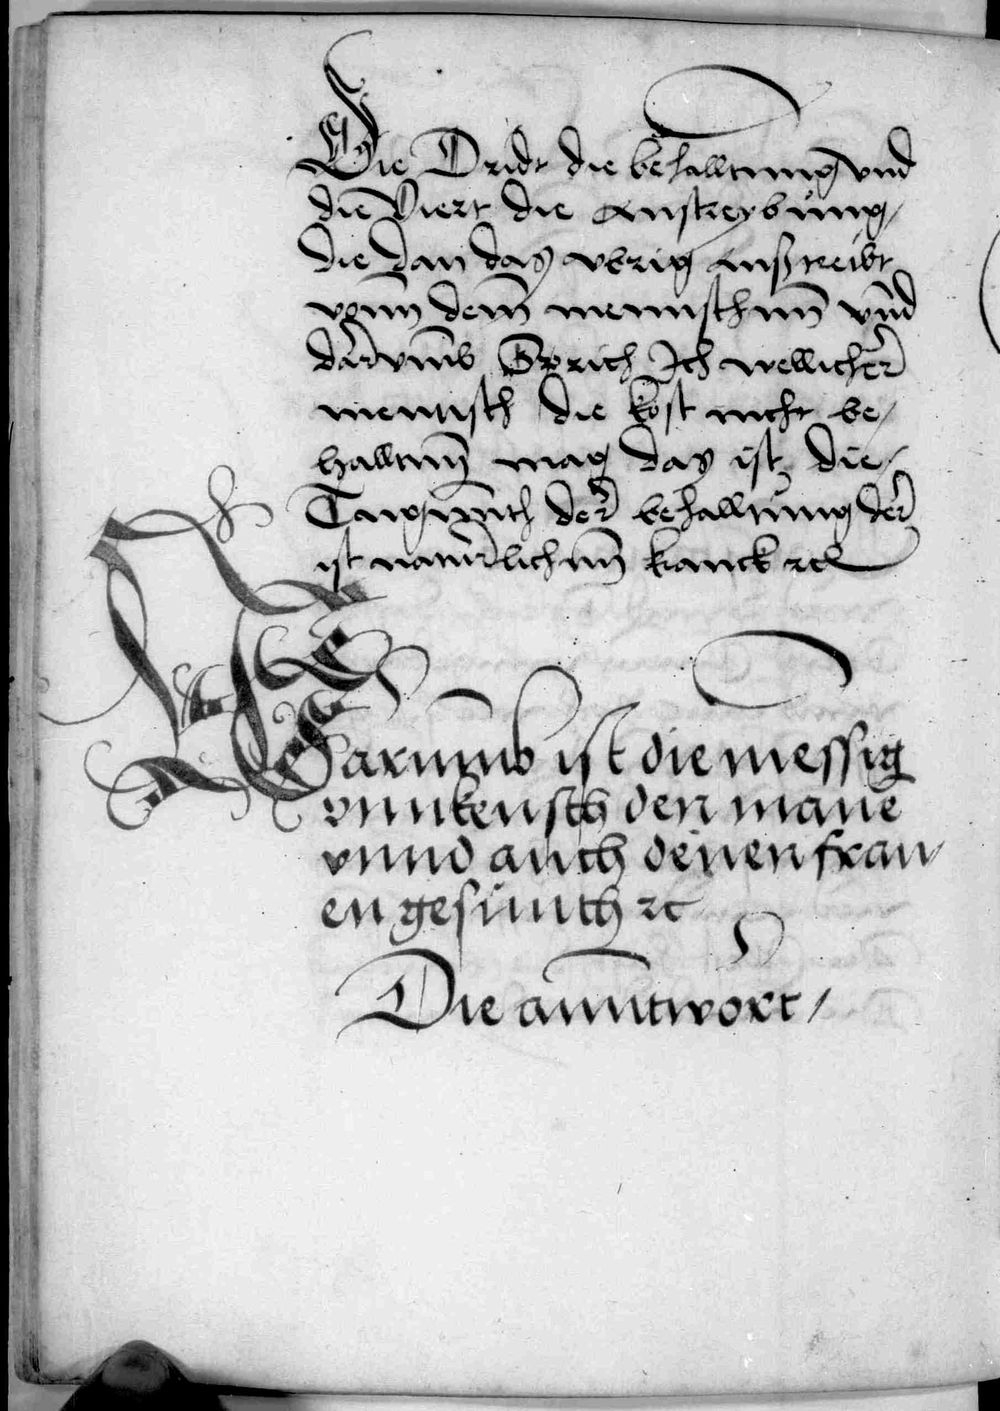 Die Dridt die behalltnung vnd
die Viert die Austreybung /
die dan das vbrig außtreibt
vonn dem mennschnn vnd
darvmb Sprich Ich wellicher
mentisch die kost nicht be /
halltnn mag das ist die /
Tugunth der behalltung der
ist naturlichnn kranck etc
Warumb ist die messig
vnnkeusch den mane
vnnd auch denen frau /
en gesunth etc
Die anntwort /